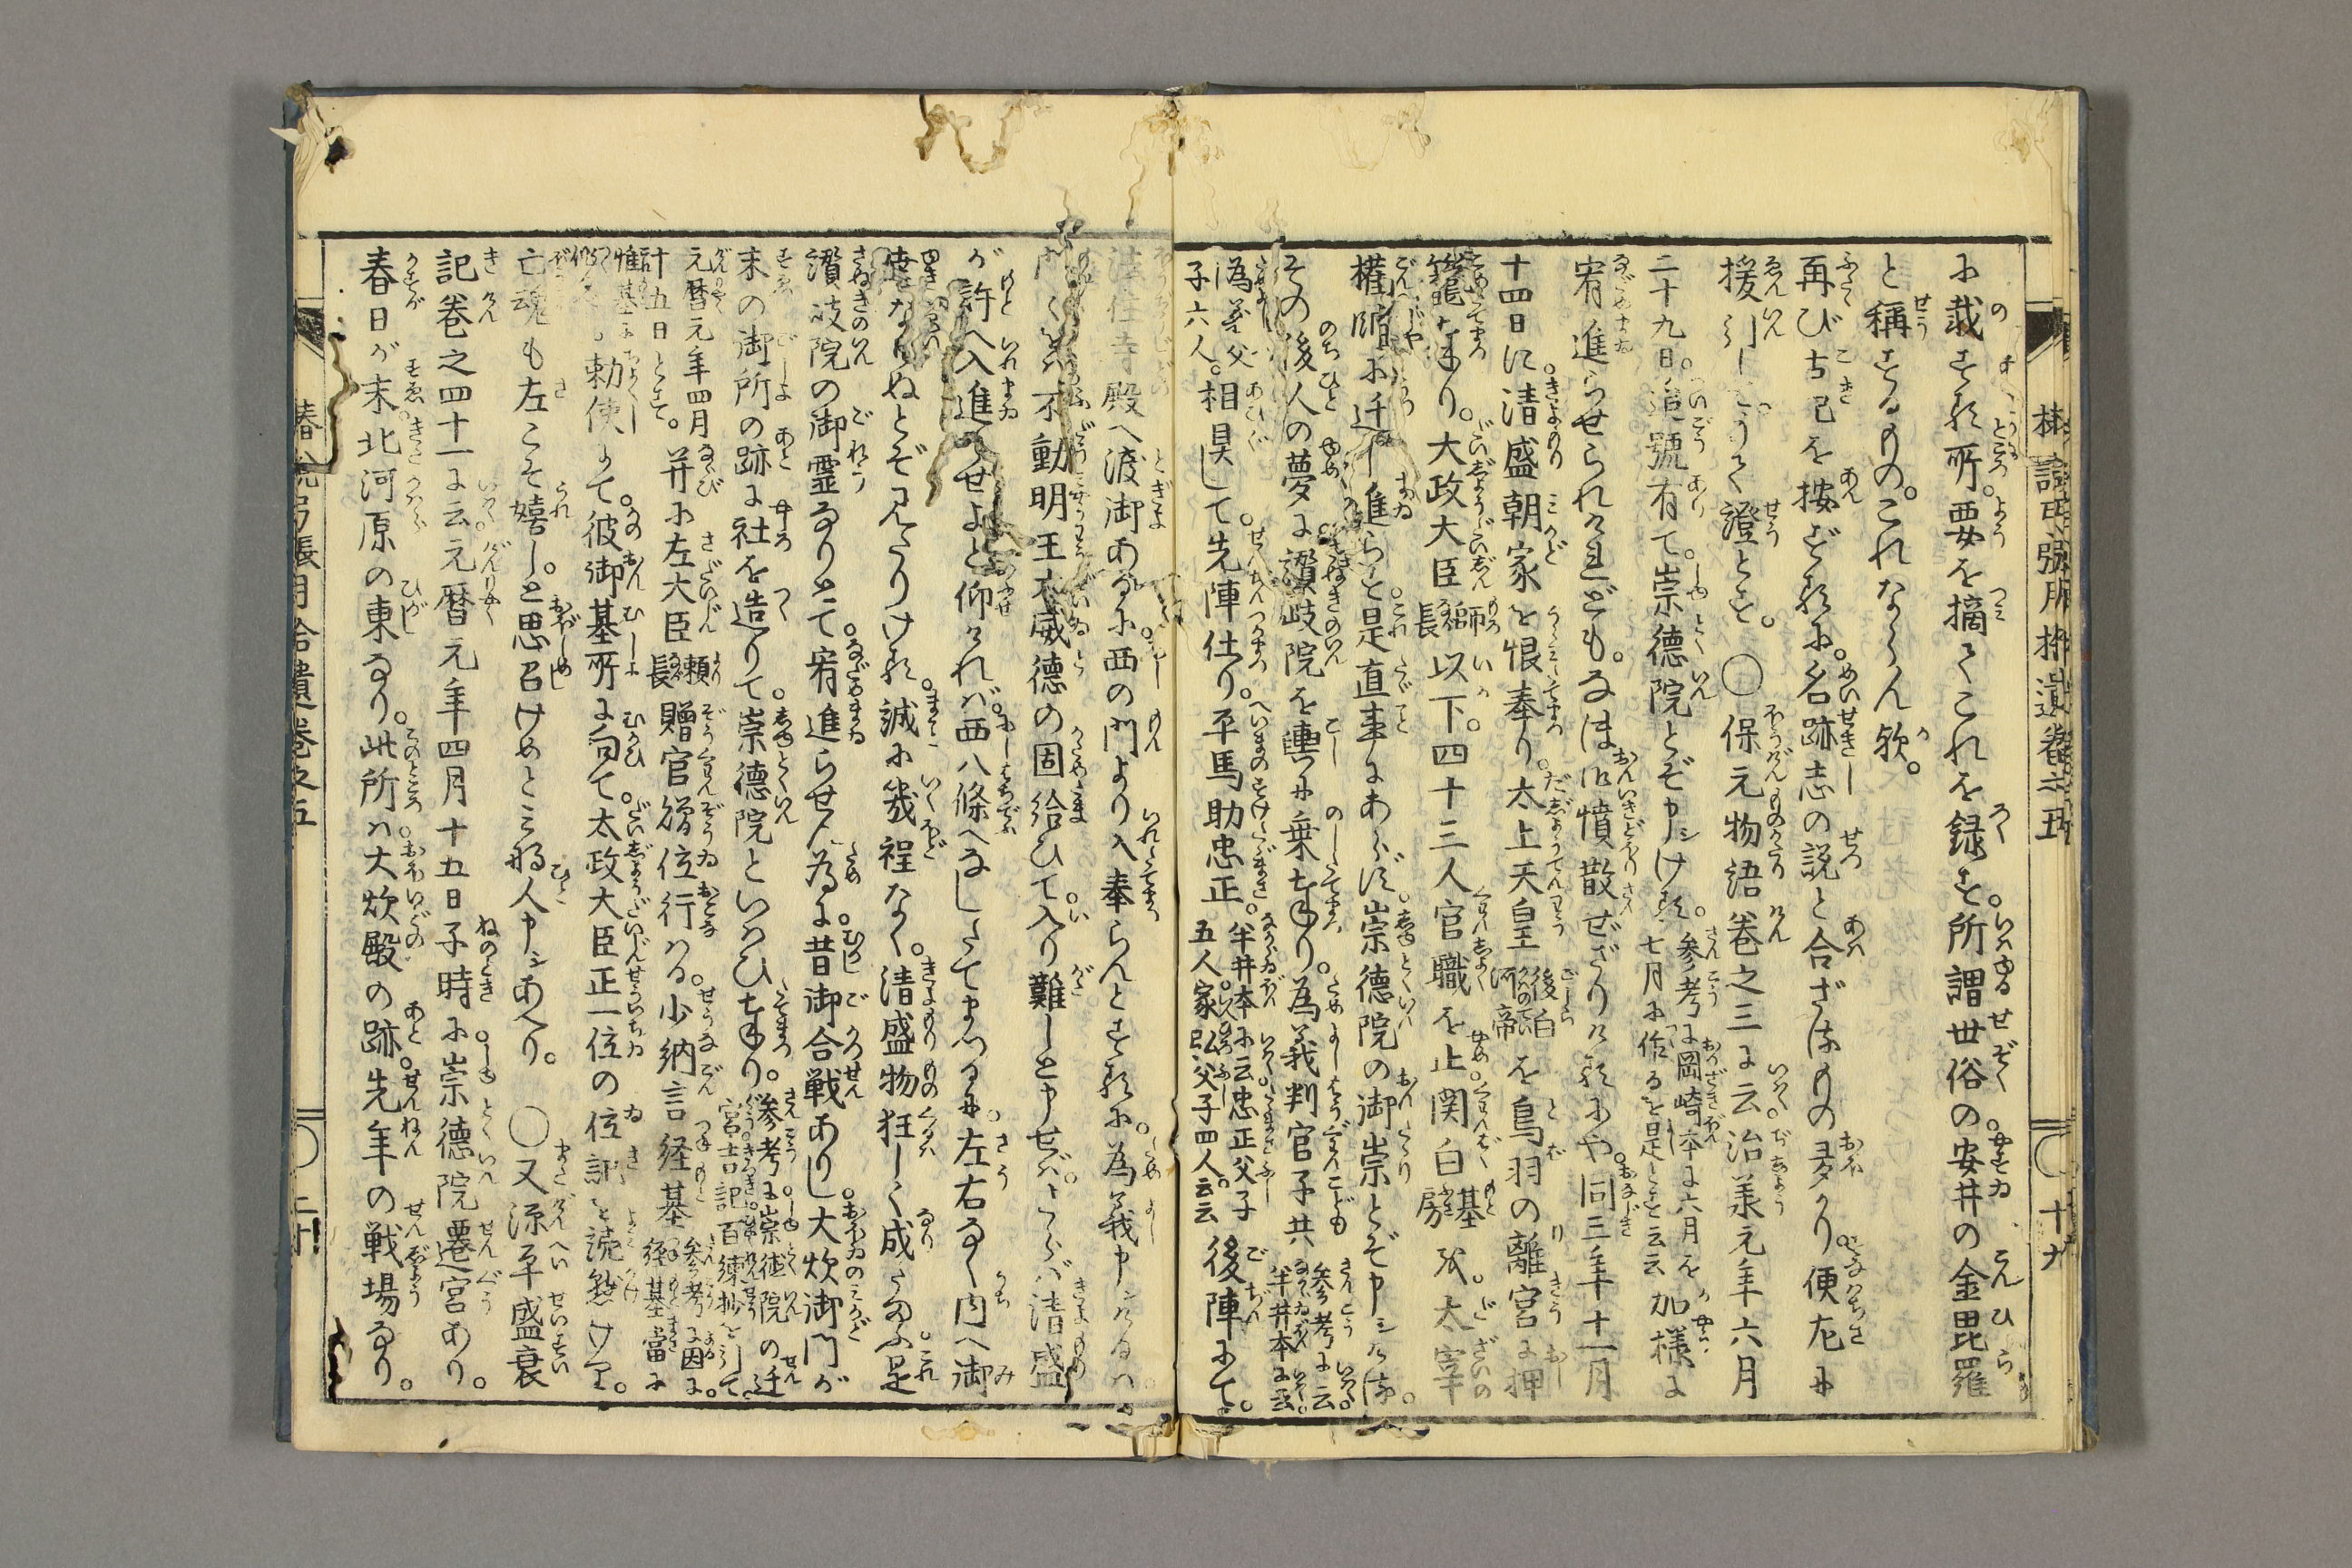 に載する所。要を摘てこれを録す。所謂世俗の安井の金毘羅
と称するもの。これならん歟。
再び古記を按ずるに。名跡志の説と合ざるもの多かり。便左に
援引しもうて證とす。〇保元物語巻之三に云治承元年六月
二十九日。追號有て。崇徳院とぞ申シける。参考に岡崎本に六月を七月に作るを是とす云云加様に
宥進らせられけれども。なほ御憤散ぜざりけるにや。同三年十一月
十四日に。清盛朝家を恨奉り。太上天皇後白河帝を鳥羽の離宮に押
籠奉り。太政大臣師長以下。四十三人官職を止関白基房を。太宰
権帥に迁し進らす。是直事にあらず。崇徳院の御祟とぞ申シける。
その後人の夢に讃岐院を輿に乗奉り。為義判官子共参考に云。半井本に云。
為義父子六人。相具して。先陣仕り。平馬助忠正。半井本に云。忠正父子五人。家弘父子四人。云云後陣にて。
法住寺殿へ渡御あるに。西の門より入奉らんとするに。為義申シけるは。
門々をば不動明王大威徳の固給ひて。入り難しと申せば。さらば清盛
が許へ入進らせよと仰ければ。西八條へなしたてまつるに。左右なく内へ御
幸なりぬとぞ見たりける。誠に幾程なく。清盛物狂しく成たまふ。是
讃岐院の御霊なりとて。宥進らせん為に。昔御合戦ありし。大炊御門が
末の御所の跡に社を造りて。崇徳院といはひ奉り。参考に。崇徳院の迁宮。吉記。百練抄を引て。
元暦元年四月十五日とす。并に左大臣頼長贈官贈位行はる。少納言経基参考に因に。経基當に
惟基に作るべし勅使にて。彼御墓所に向て。太政大臣正一位の位記を読懸けり。
亡魂も左こそ嬉しと思召けめとこそ人申シあへり。〇又源平盛衰
記巻之四十一に云元暦元年四月十五日子時に。崇徳院遷宮あり。
春日が末。北河原の東なり。此所は。大炊殿の跡。先年の戦場なり。
椿説弓張月拾遺巻之五
十九